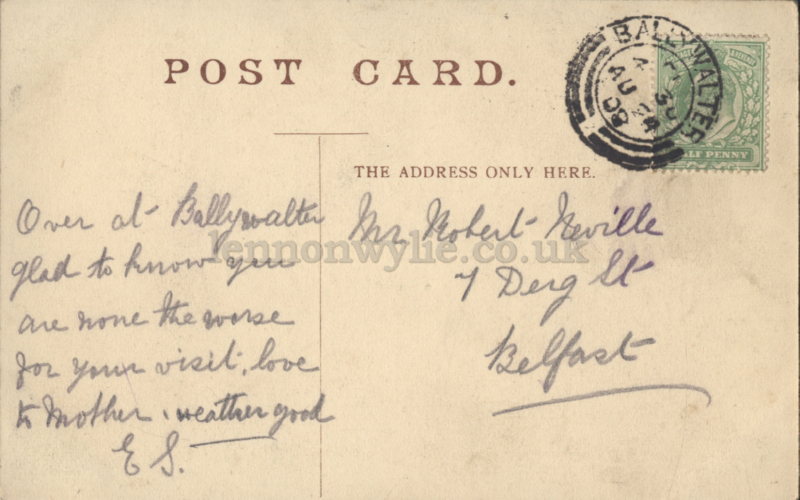 POST CARD.
BALLYWALTER
AU 24
08
HALF PENNY
THE ADDRESS ONLY HERE.
Over at Ballywalter
glad to know you
are none the worse
for your visit, love
to Mother. weather good
E S.
Mr Robert Neville
7 Derg St
Belfast
lennonwylie.co.uk